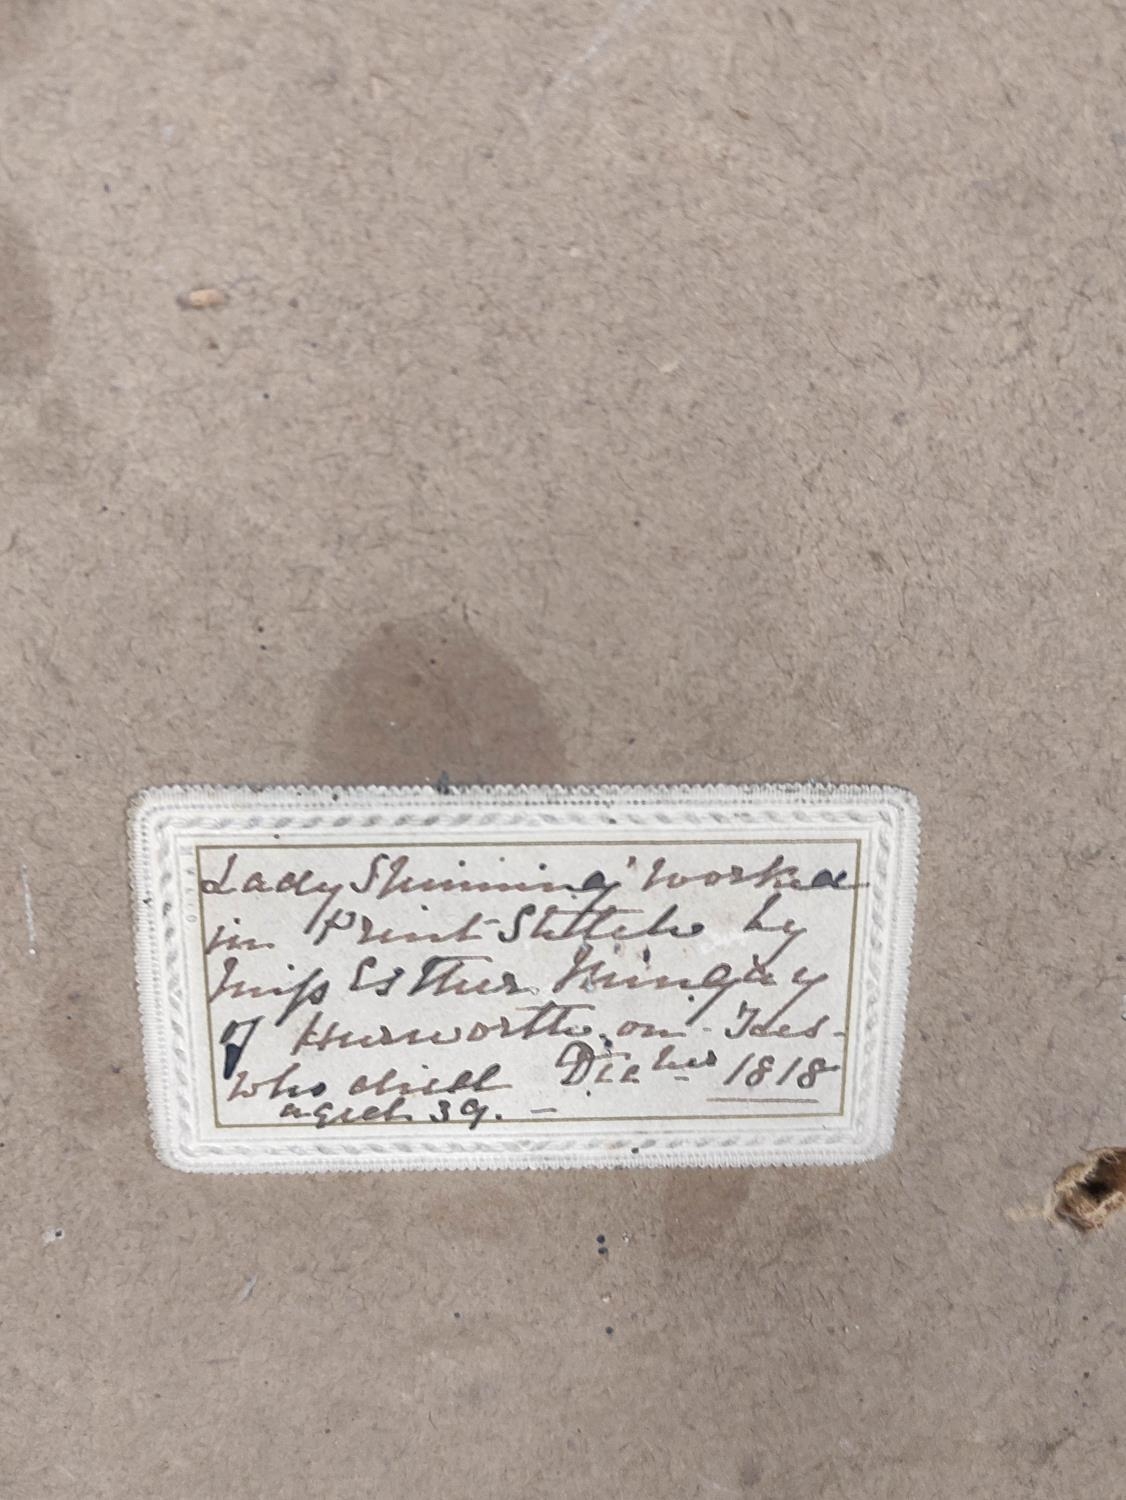 Lady Spinning' Worked
in Print-Stitch by
Miss Esther Mingay
of Hurworth. on-Tees-
who died Decber 1818
aged. 39. —